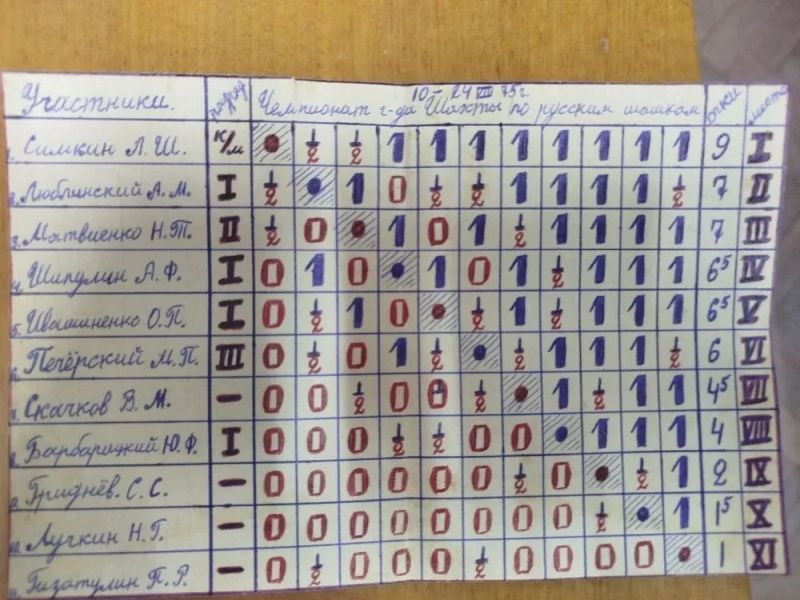 Участники. разряд Чемпионат г-да Шахты по русским шашкам 10-24 VIII 75г. очки место
1. Симкин Л. Ш. к/м ● ½ ½ 1 1 1 1 1 1 1 1 9 I
2. Люблинский А. М. I ½ ● 1 0 ½ ½ 1 1 1 1 ½ 7 II
3. Матвиенко Н. Т. II ½ 0 ● 1 0 1 ½ 1 1 1 1 7 III
4. Шипулин А. Ф. I 0 1 0 ● 1 0 1 ½ 1 1 1 6⁵ IV
5. Ивашиненко О. П. I 0 ½ 1 0 ● ½ 1 ½ 1 1 1 6⁵ V
6. Печёрский М. П. III 0 ½ 0 1 ½ ● ½ 1 1 1 ½ 6 VI
7. Скачков В. М. — 0 0 ½ 0 0 ½ ● 1 ½ 1 1 4⁵ VII
8. Барбарицкий Ю. Ф. I 0 0 0 ½ ½ 0 0 ● 1 1 1 4 VIII
9. Гриднёв. С. С. — 0 0 0 0 0 0 ½ 0 ● ½ 1 2 IX
10. Лучкин Н. Г. — 0 0 0 0 0 0 0 0 ½ ● 1 1⁵ X
11. Гизатулин П. Р. — 0 ½ 0 0 0 ½ 0 0 0 0 ● 1 XI